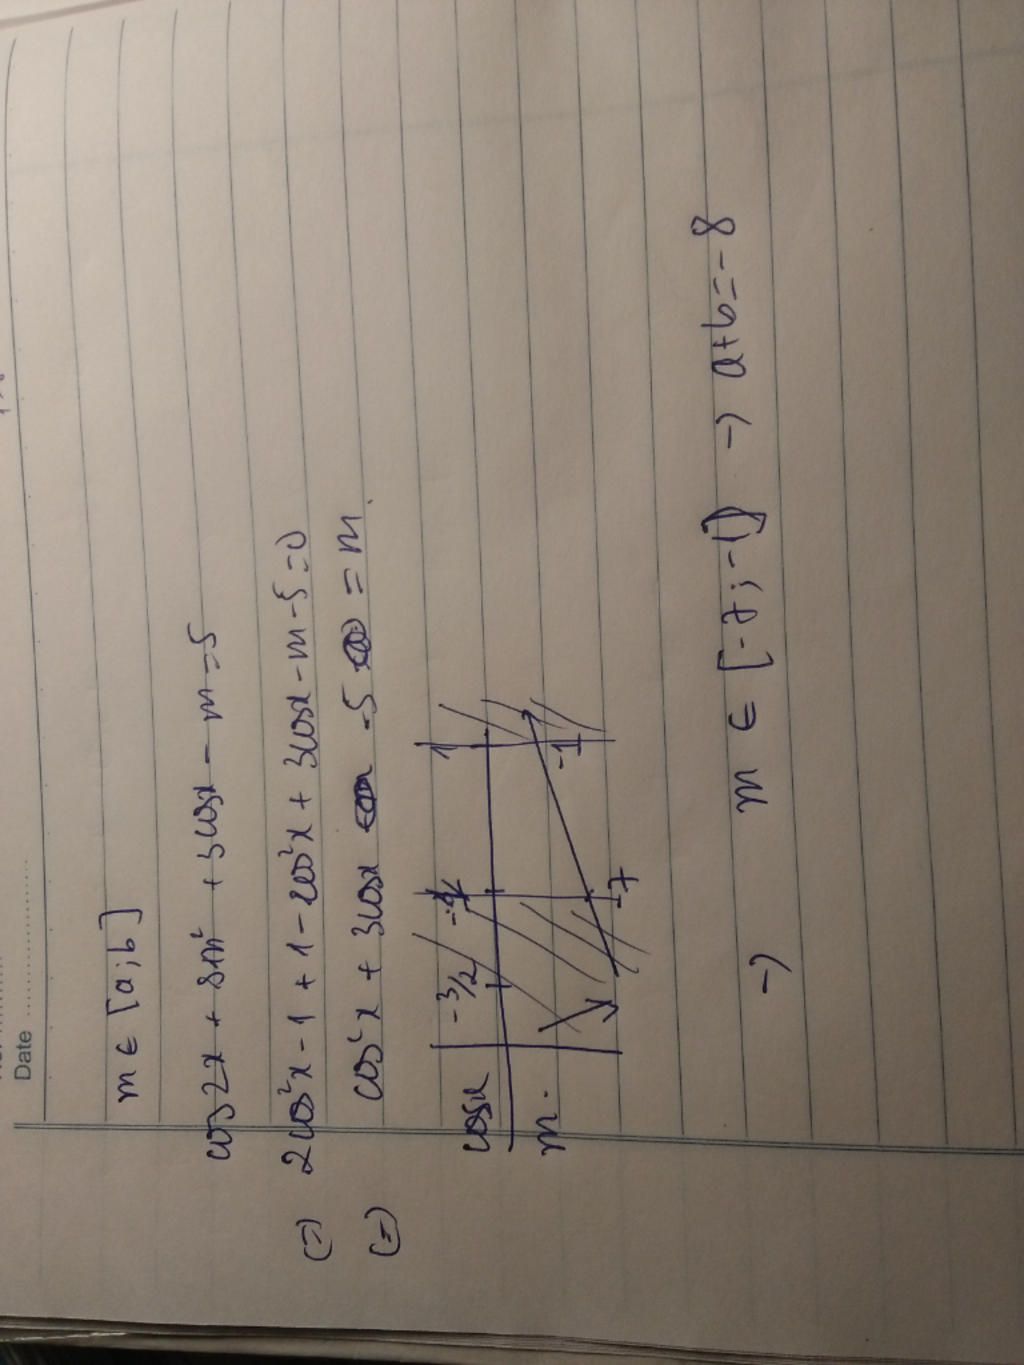 Date
m ∈ [a;b]
cos2x + sin² + 3cosx - m = 5
(=) 2cos²x - 1 + 1 - cos²x + 3cosx - m - 5 = 0
(=) cos²x + 3cosx - 5 = m
cosx -3/2 -1 1
m. -7 -1
→ m ∈ [-7; -1] → a+b = -8